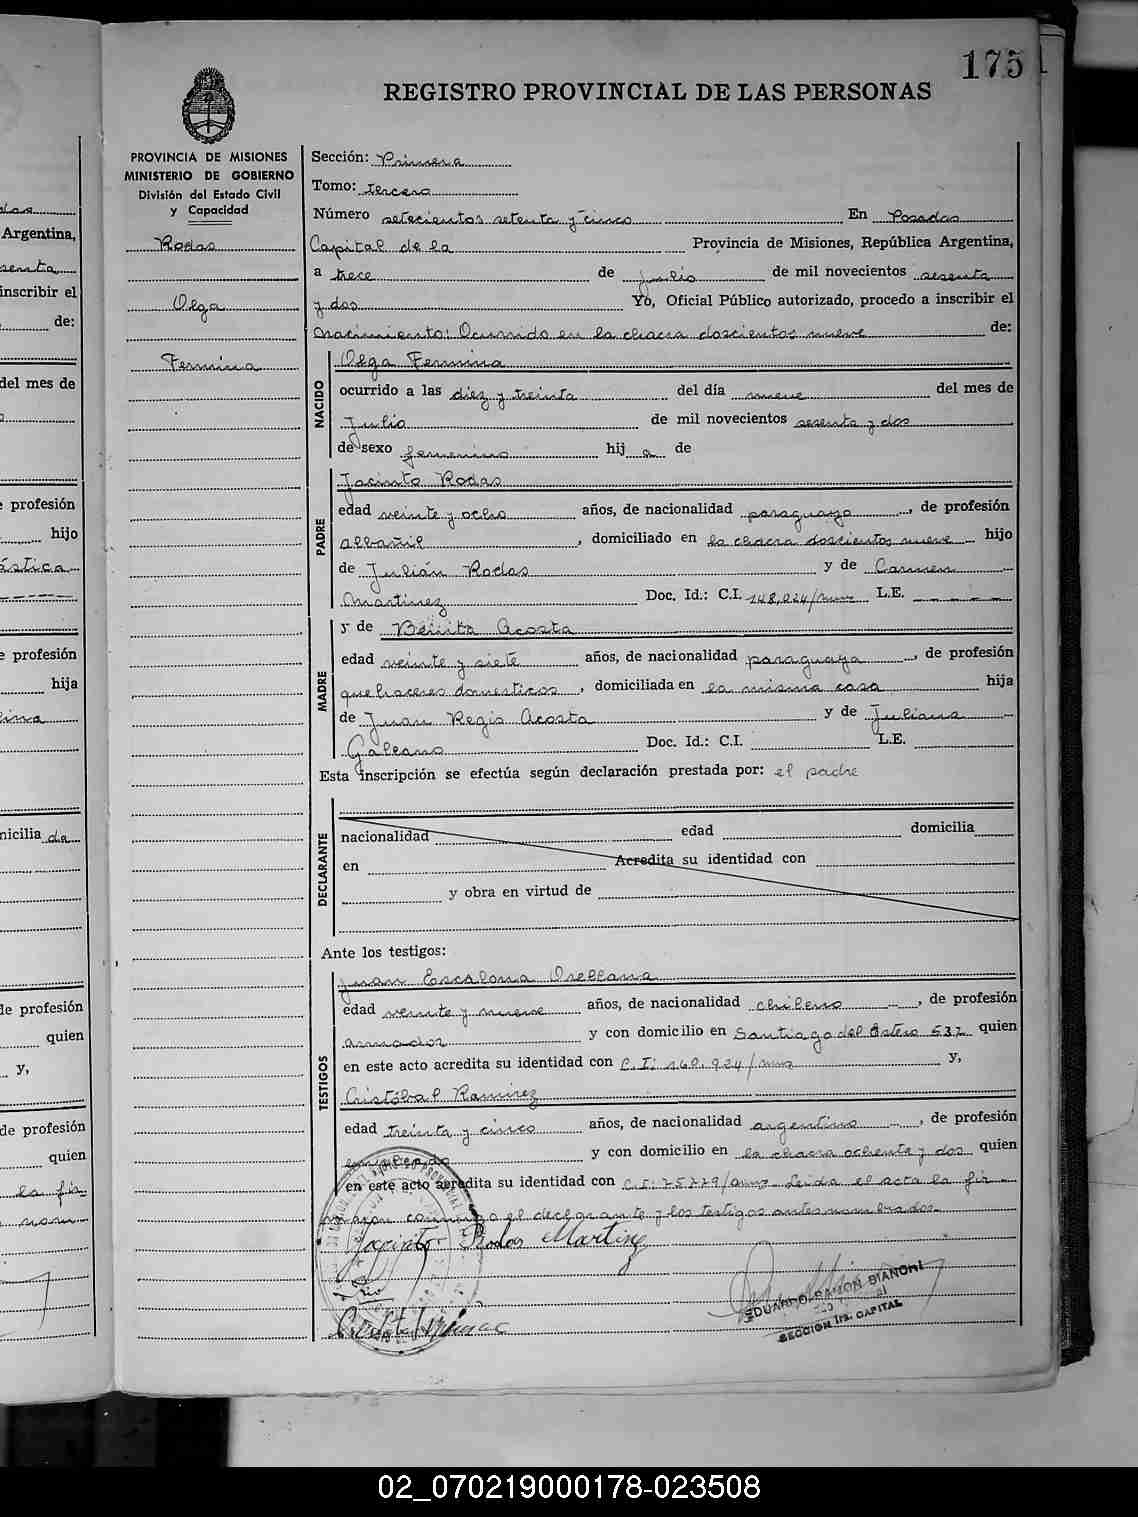 175
REGISTRO PROVINCIAL DE LAS PERSONAS
PROVINCIA DE MISIONES
MINISTERIO DE GOBIERNO
División del Estado Civil
y Capacidad
Rodas
Olga
Fermina
Sección: Primera
Tomo: tercero
Número setecientos setenta y cinco En Posadas
Capital de la Provincia de Misiones, República Argentina,
a trece de julio de mil novecientos sesenta
y dos Yo, Oficial Público autorizado, procedo a inscribir el
nacimiento: Ocurrido en la chacra doscientos nueve de:
NACIDO
Olga Fermina
ocurrido a las diez y treinta del día nueve del mes de
Julio de mil novecientos sesenta y dos
de sexo femenino hij a de
PADRE
Jacinto Rodas
edad veinte y ocho años, de nacionalidad paraguaya, de profesión
albañil, domiciliado en la chacra doscientos nueve hijo
de Julián Rodas y de Carmen
Martinez Doc. Id.: C.I. 148.024/ L.E.
MADRE
y de Benita Acosta
edad veinte y siete años, de nacionalidad paraguaya, de profesión
quehaceres domesticos, domiciliada en la misma casa hija
de Juan Regis Acosta y de Juliana
Galeano Doc. Id.: C.I. L.E.
Esta inscripción se efectúa según declaración prestada por: el padre
DECLARANTE
nacionalidad edad domicilia
en Acredita su identidad con
y obra en virtud de
Ante los testigos:
TESTIGOS
Juan Escalona Orellana
edad veinte y nueve años, de nacionalidad chileno, de profesión
armador y con domicilio en Santiago del Estero 532 quien
en este acto acredita su identidad con C.I: y,
Cristóbal Ramirez
edad treinta y cinco años, de nacionalidad argentino, de profesión
empleado y con domicilio en la chacra ochenta y dos quien
en este acto acredita su identidad con C.I: 75779/ Leida el acta la fir
maron conmigo el declarante y los testigos antes nombrados
Jacinto Rodas Martinez
EDUARDO RAMON BIANCHI
SECCION 1ra. CAPITAL
Argentina,
inscribir el
de:
del mes de
profesión
hijo
profesión
hija
de profesión
quien
y,
de profesión
quien
la fir
02_070219000178-023508